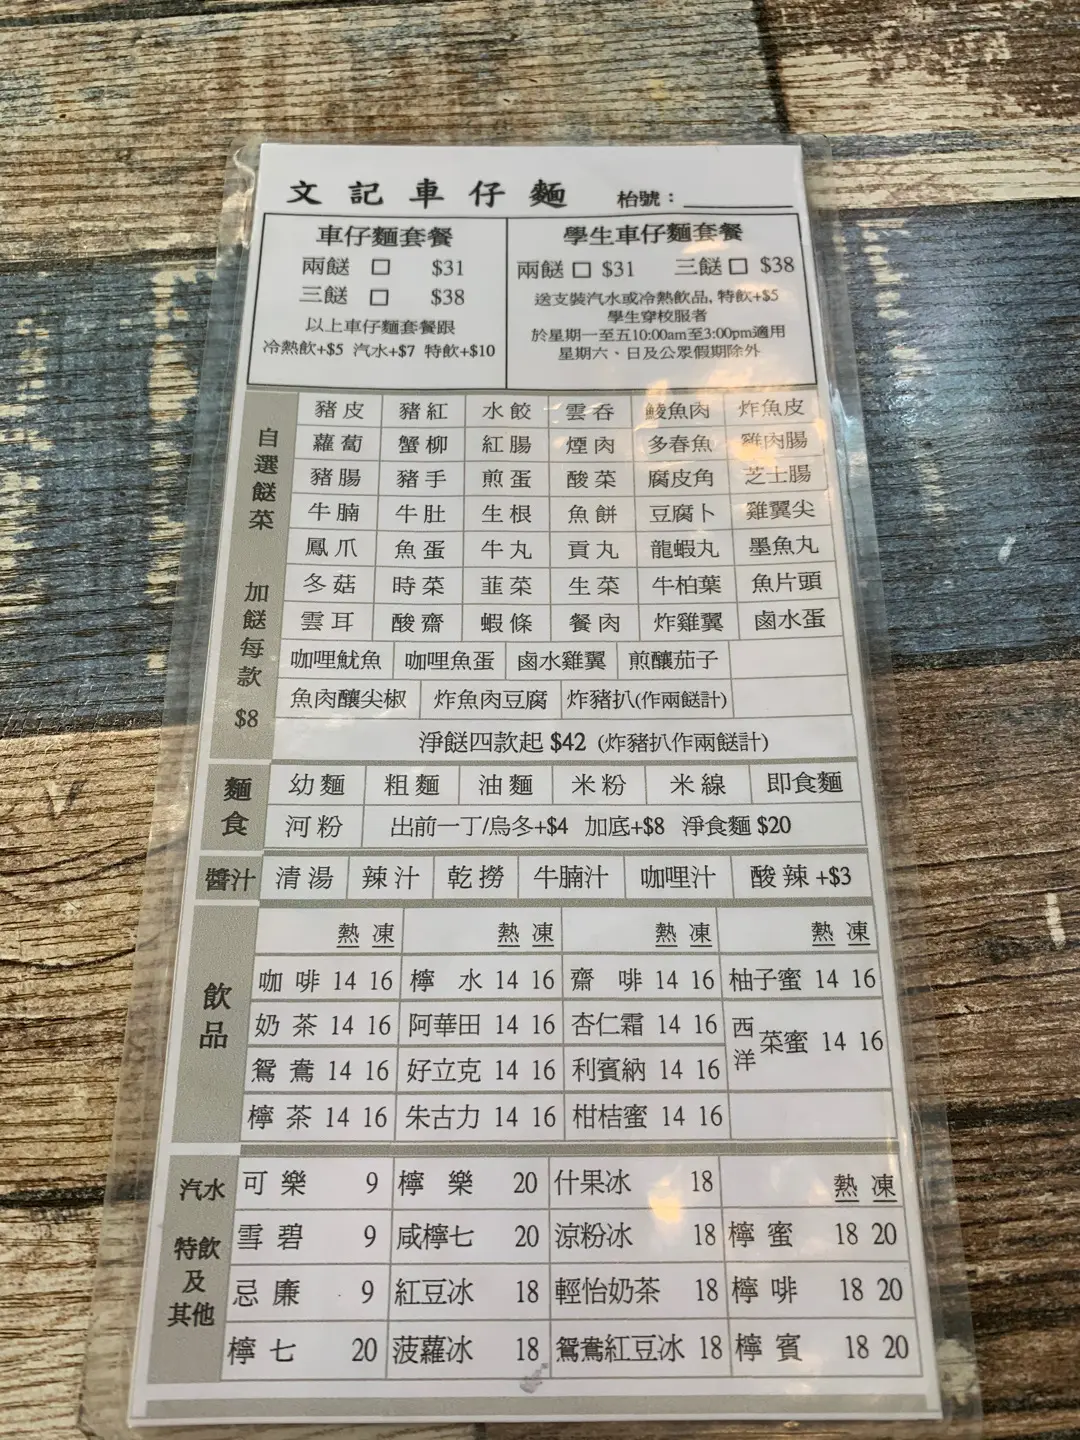 文記車仔麵 枱號：
車仔麵套餐
兩餸 □ $31
三餸 □ $38
以上車仔麵套餐跟
冷熱飲+$5 汽水+$7 特飲+$10
學生車仔麵套餐
兩餸 □ $31 三餸 □ $38
送支裝汽水或冷熱飲品, 特飲+$5
學生穿校服者
於星期一至五10:00am至3:00pm適用
星期六、日及公眾假期除外
自選餸菜 加餸每款 $8
豬皮 豬紅 水餃 雲吞 鯪魚肉 炸魚皮
蘿蔔 蟹柳 紅腸 煙肉 多春魚 雞肉腸
豬腸 豬手 煎蛋 酸菜 腐皮角 芝士腸
牛腩 牛肚 生根 魚餅 豆腐卜 雞翼尖
鳳爪 魚蛋 牛丸 貢丸 龍蝦丸 墨魚丸
冬菇 時菜 韮菜 生菜 牛柏葉 魚片頭
雲耳 酸齋 蝦條 餐肉 炸雞翼 鹵水蛋
咖哩魷魚 咖哩魚蛋 鹵水雞翼 煎釀茄子
魚肉釀尖椒 炸魚肉豆腐 炸豬扒(作兩餸計)
淨餸四款起 $42 (炸豬扒作兩餸計)
麵食
幼麵 粗麵 油麵 米粉 米線 即食麵
河粉 出前一丁/烏冬+$4 加底+$8 淨食麵 $20
醬汁 清湯 辣汁 乾撈 牛腩汁 咖哩汁 酸辣+$3
飲品
熱 凍 熱 凍 熱 凍 熱 凍
咖啡 14 16 檸水 14 16 齋啡 14 16 柚子蜜 14 16
奶茶 14 16 阿華田 14 16 杏仁霜 14 16 西洋菜蜜 14 16
鴛鴦 14 16 好立克 14 16 利賓納 14 16
檸茶 14 16 朱古力 14 16 柑桔蜜 14 16
汽水 特飲及其他
可樂 9 檸樂 20 什果冰 18 熱 凍
雪碧 9 咸檸七 20 涼粉冰 18 檸蜜 18 20
忌廉 9 紅豆冰 18 輕怡奶茶 18 檸啡 18 20
檸七 20 菠蘿冰 18 鴛鴦紅豆冰 18 檸賓 18 20